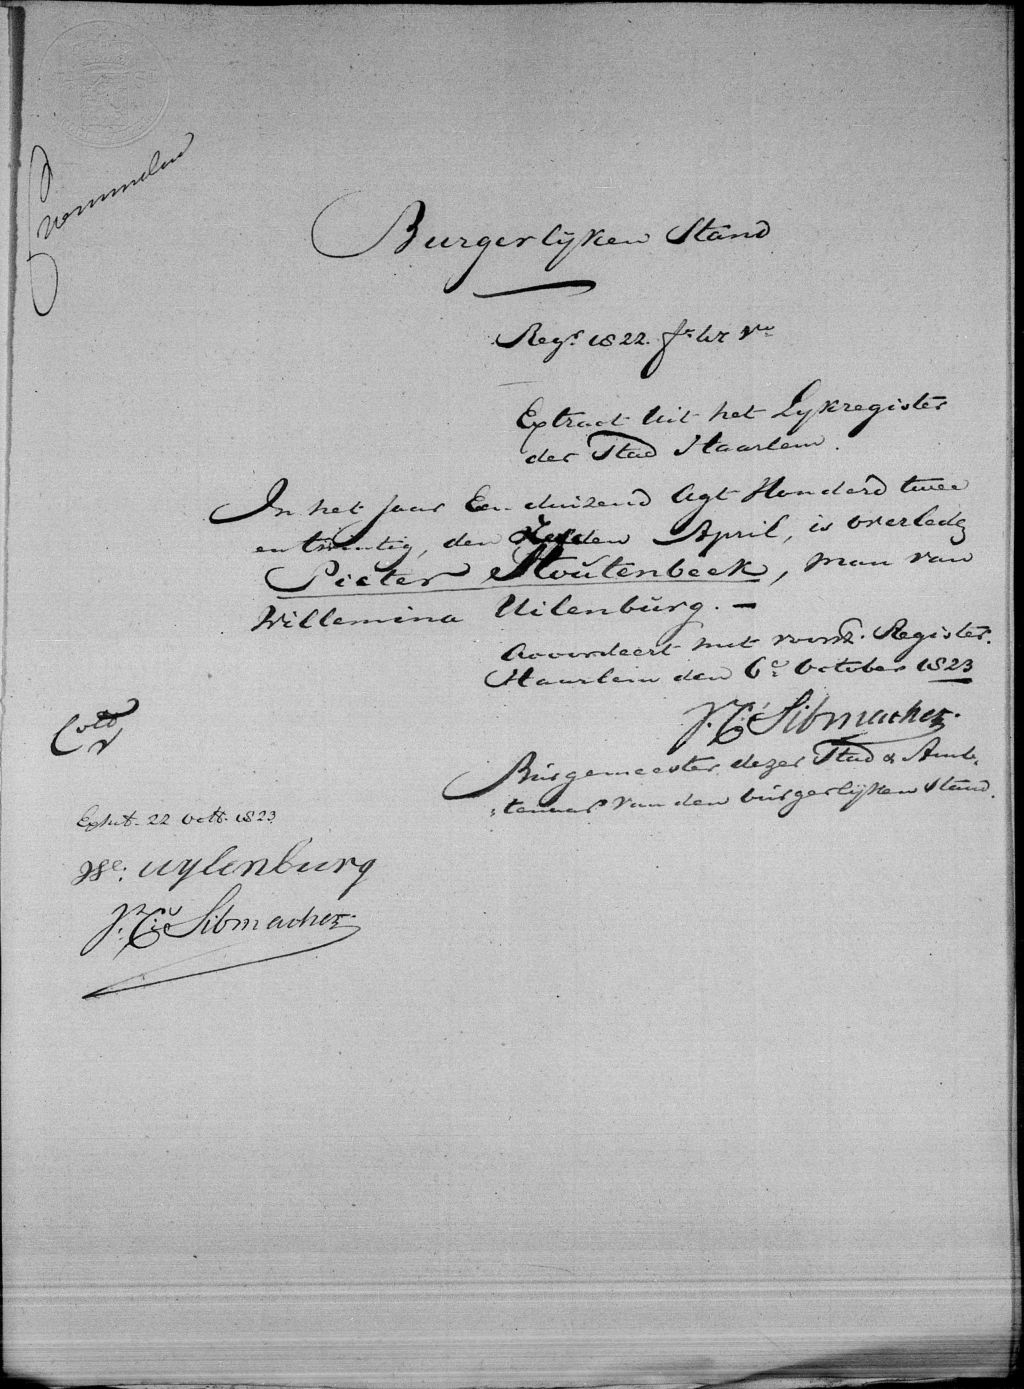 Burgerlyken Stand
Regr. 1822. fo. vo
Extract uit het Lykregister
der Stad Haarlem.
In het Jaar Een duizend Agt Honderd twee
en twintig, den April, is overleden
Pieter Stoutenbeek, man van
Willemina Uilenburg. —
Accordeert met voorsz. Register.
Haarlem den 6e October 1823
Js. Cs. Sibmacher.
Burgemeester dezer Stad & Amb-
-tenaar van den burgerlyken Stand.
Collt
Exhit. 22 octb. 1823
We: uylenburg
Js. Cs. Sibmacher